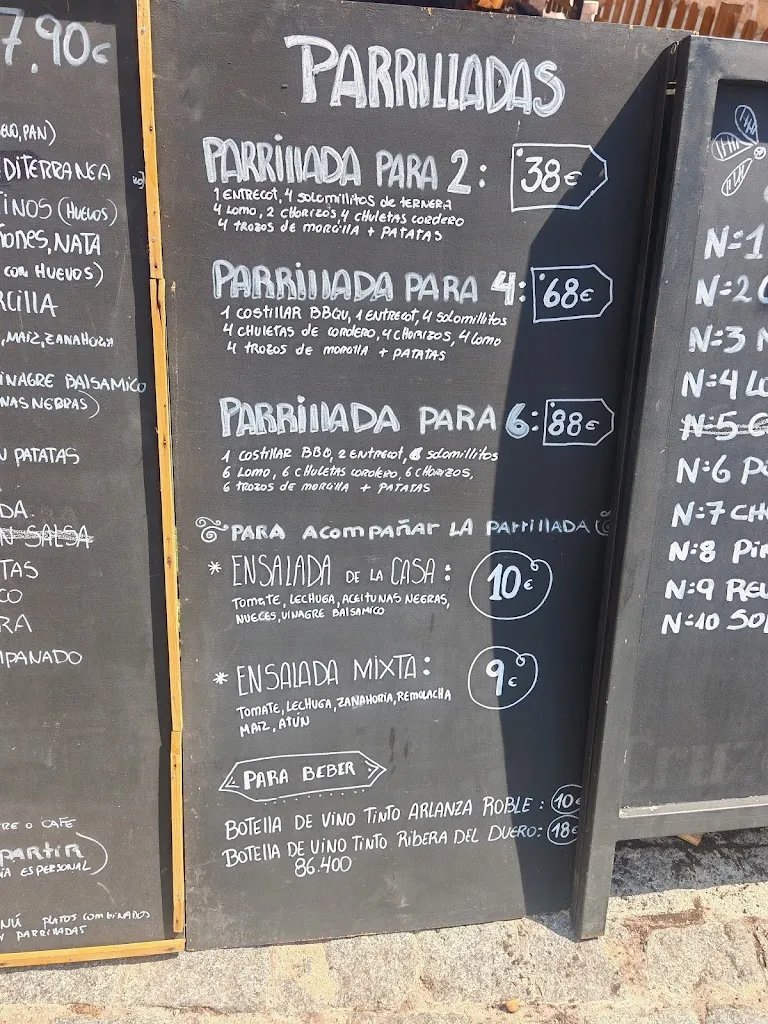 7.90€
PAN)
DITERRANEA
TINOS (HUEVOS)
ÑONES, NATA
CON HUEVOS)
RCILLA
, MAIZ, ZANAHORIA
INAGRE BALSAMICO
NAS NEGRAS)
N PATATAS
DA.
N SALSA
TAS
CO
RA
MPANADO
RE O CAFE
PARTIR
ES PERSONAL)
NÚ PLATOS COMBINADOS
Y PARRILLADAS
PARRILLADAS
PARRILLADA PARA 2: 38€
1 ENTRECOT, 4 SOLOMILLITOS DE TERNERA
4 LOMO, 2 CHORIZOS, 4 CHULETAS CORDERO
4 TROZOS DE MORCILLA + PATATAS
PARRILLADA PARA 4: 68€
1 COSTILLAR BBQU, 1 ENTRECOT, 4 SOLOMILLITOS
4 CHULETAS DE CORDERO, 4 CHORIZOS, 4 LOMO
4 TROZOS DE MORCILLA + PATATAS
PARRILLADA PARA 6: 88€
1 COSTILLAR BBQ, 2 ENTRECOT, 6 SOLOMILLITOS
6 LOMO, 6 CHULETAS CORDERO, 6 CHORIZOS,
6 TROZOS DE MORCILLA + PATATAS
PARA ACOMPAÑAR LA PARRILLADA
* ENSALADA DE LA CASA: 10€
TOMATE, LECHUGA, ACEITUNAS NEGRAS,
NUECES, VINAGRE BALSAMICO
* ENSALADA MIXTA: 9€
TOMATE, LECHUGA, ZANAHORIA, REMOLACHA
MAIZ, ATÚN
PARA BEBER
BOTELLA DE VINO TINTO ARLANZA ROBLE: 10€
BOTELLA DE VINO TINTO RIBERA DEL DUERO: 18€
86.400
N=1
N=2
N=3
N=4 LO
N=5
N=6 P
N=7 CH
N=8 PI
N=9 REV
N=10 SO